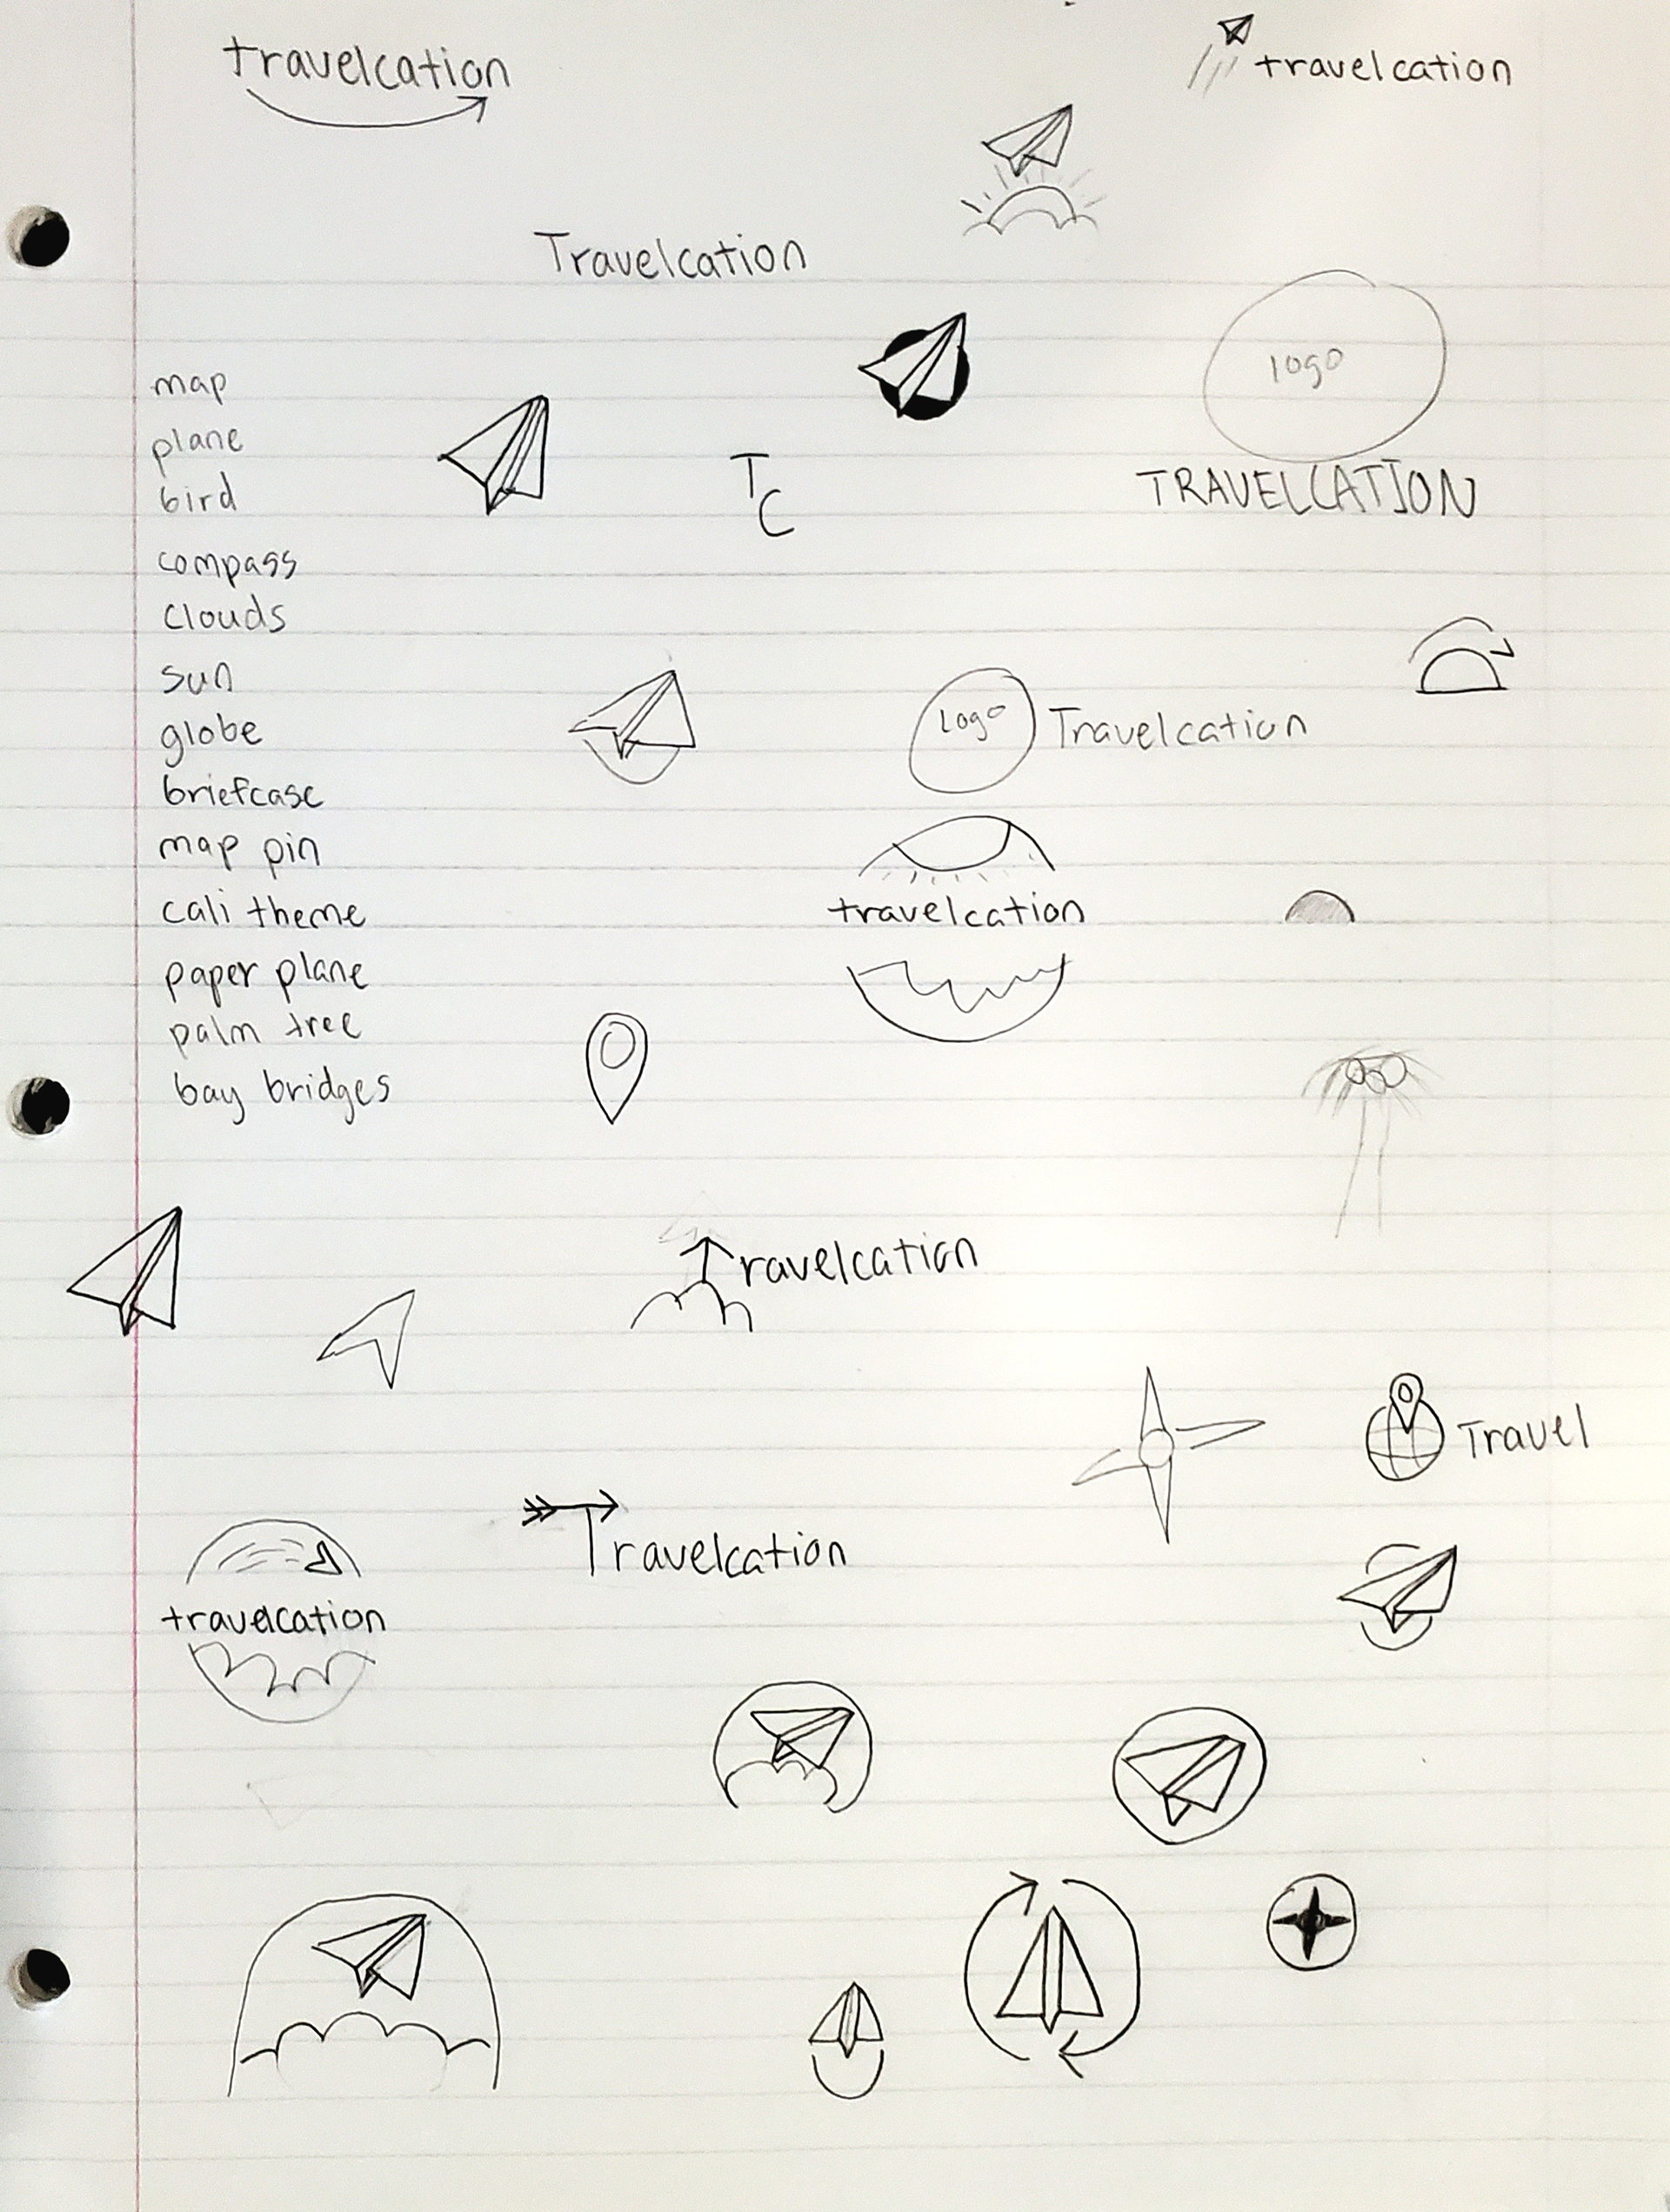 travelcation
travelcation
Travelcation
logo
map
plane
TC
TRAVELCATION
bird
compass
clouds
sun
globe
logo Travelcation
briefcase
map pin
cali theme
travelcation
paper plane
palm tree
bay bridges
Travelcation
Travel
Travelcation
travelcation